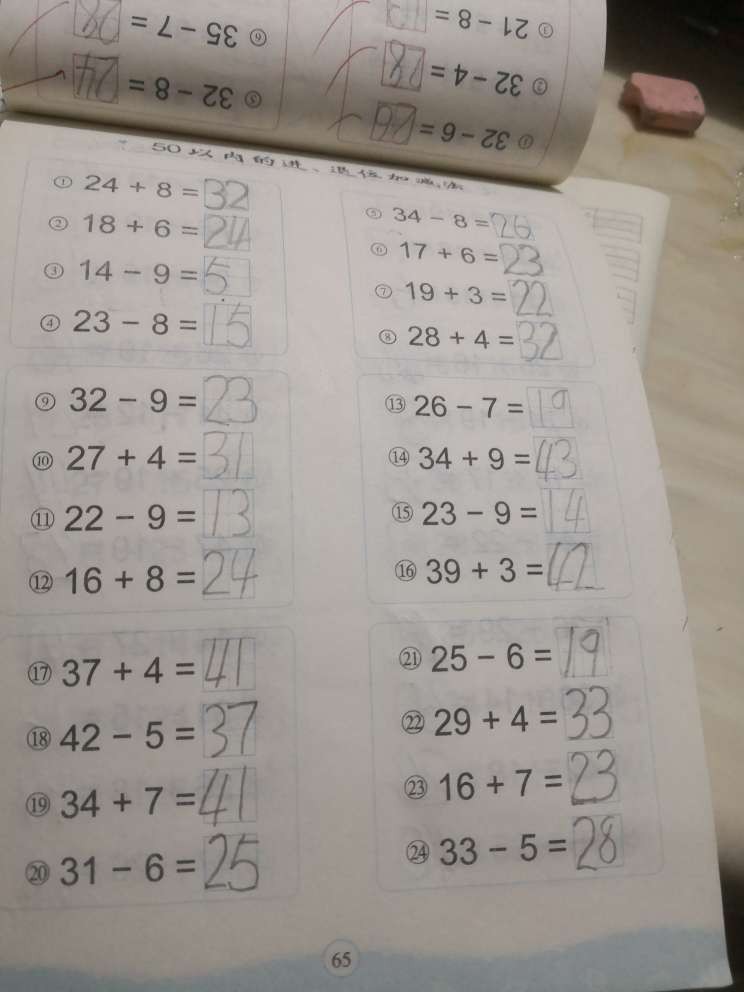 ⑥ 35 - 7 = 28
⑤ 32 - 8 = 24
③ 21 - 8 =
② 32 - 4 = 28
① 32 - 6 = 26
50以内的进、退位加减法
① 24 + 8 = 32
② 18 + 6 = 24
③ 14 - 9 = 5
④ 23 - 8 = 15
⑤ 34 - 8 = 26
⑥ 17 + 6 = 23
⑦ 19 + 3 = 22
⑧ 28 + 4 = 32
⑨ 32 - 9 = 23
⑩ 27 + 4 = 31
⑪ 22 - 9 = 13
⑫ 16 + 8 = 24
⑬ 26 - 7 = 19
⑭ 34 + 9 = 43
⑮ 23 - 9 = 14
⑯ 39 + 3 = 42
⑰ 37 + 4 = 41
⑱ 42 - 5 = 37
⑲ 34 + 7 = 41
⑳ 31 - 6 = 25
㉑ 25 - 6 = 19
㉒ 29 + 4 = 33
㉓ 16 + 7 = 23
㉔ 33 - 5 = 28
65